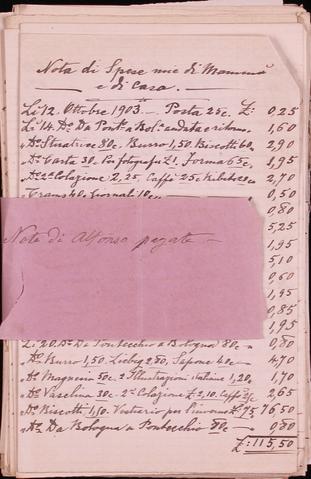 Nota di Spese mie di Mamma
e di Casa.
Li 12. Ottobre 1903. — Posta 25c. £: 0,25
Li 14. Do. Da Pont.o a Bol.a andata e ritorno. 1,60
" Do. 80c. Burro 1,50. Biscotti 60c 2,90
" Do. Carta 30. Per fotografie £1. Forma 65c. 1,95
" Do. 2a Colazione 2,25. Caffè 25c 2,70
Trams 40. Giornali 10c 0,50
0,80
5,25
Note di Alfonso pagate —
1,95
5,10
0,60
1,95
0,85
1,95
Li 20. Do. Da Pontecchio a Bologna 80c — 0,80
" Do. Burro 1,50. Liebig 2,80, Sapone 40c — 4,70
" Do. Magnesia 50c. 2 Illustrazioni italiane 1,20c 1,70
" Do. Vaselina 30c. 2a Colazione £ 2,10. Caffè 25c 2,65
" Do. Biscotti 1,50. Vestiario per £. 75 76,50
" Do. Da Bologna a Pontecchio 80c — 0,80
£: 115,50